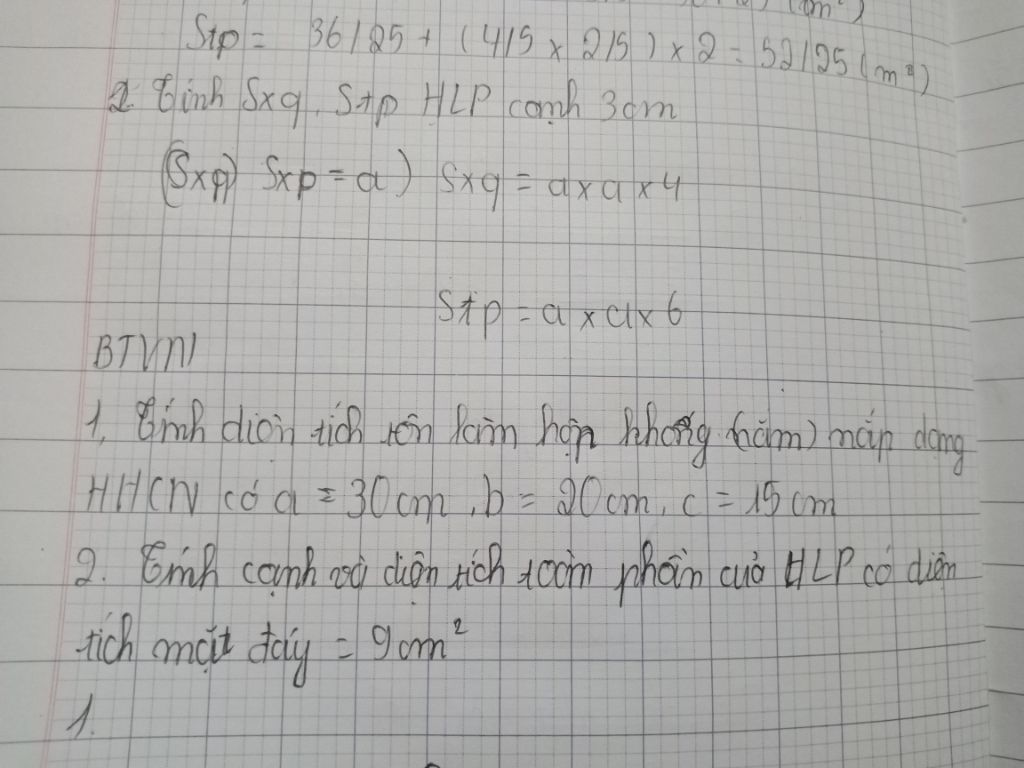 Stp = 36/25 + (4/5 x 2/5) x 2 = 52/25 (m²)
2. Tính Sxq, Stp HLP cạnh 3cm
(Sxq) Sxp = a) Sxq = a x a x 4
Stp = a x a x 6
BTVN
1, Tính diện tích tôn làm hộp không (nắm) nắp dạng
HHCN có a = 30cm, b = 20cm, c = 15cm
2. Tính cạnh và diện tích toàn phần của HLP có diện
tích mặt đáy = 9cm²
1.